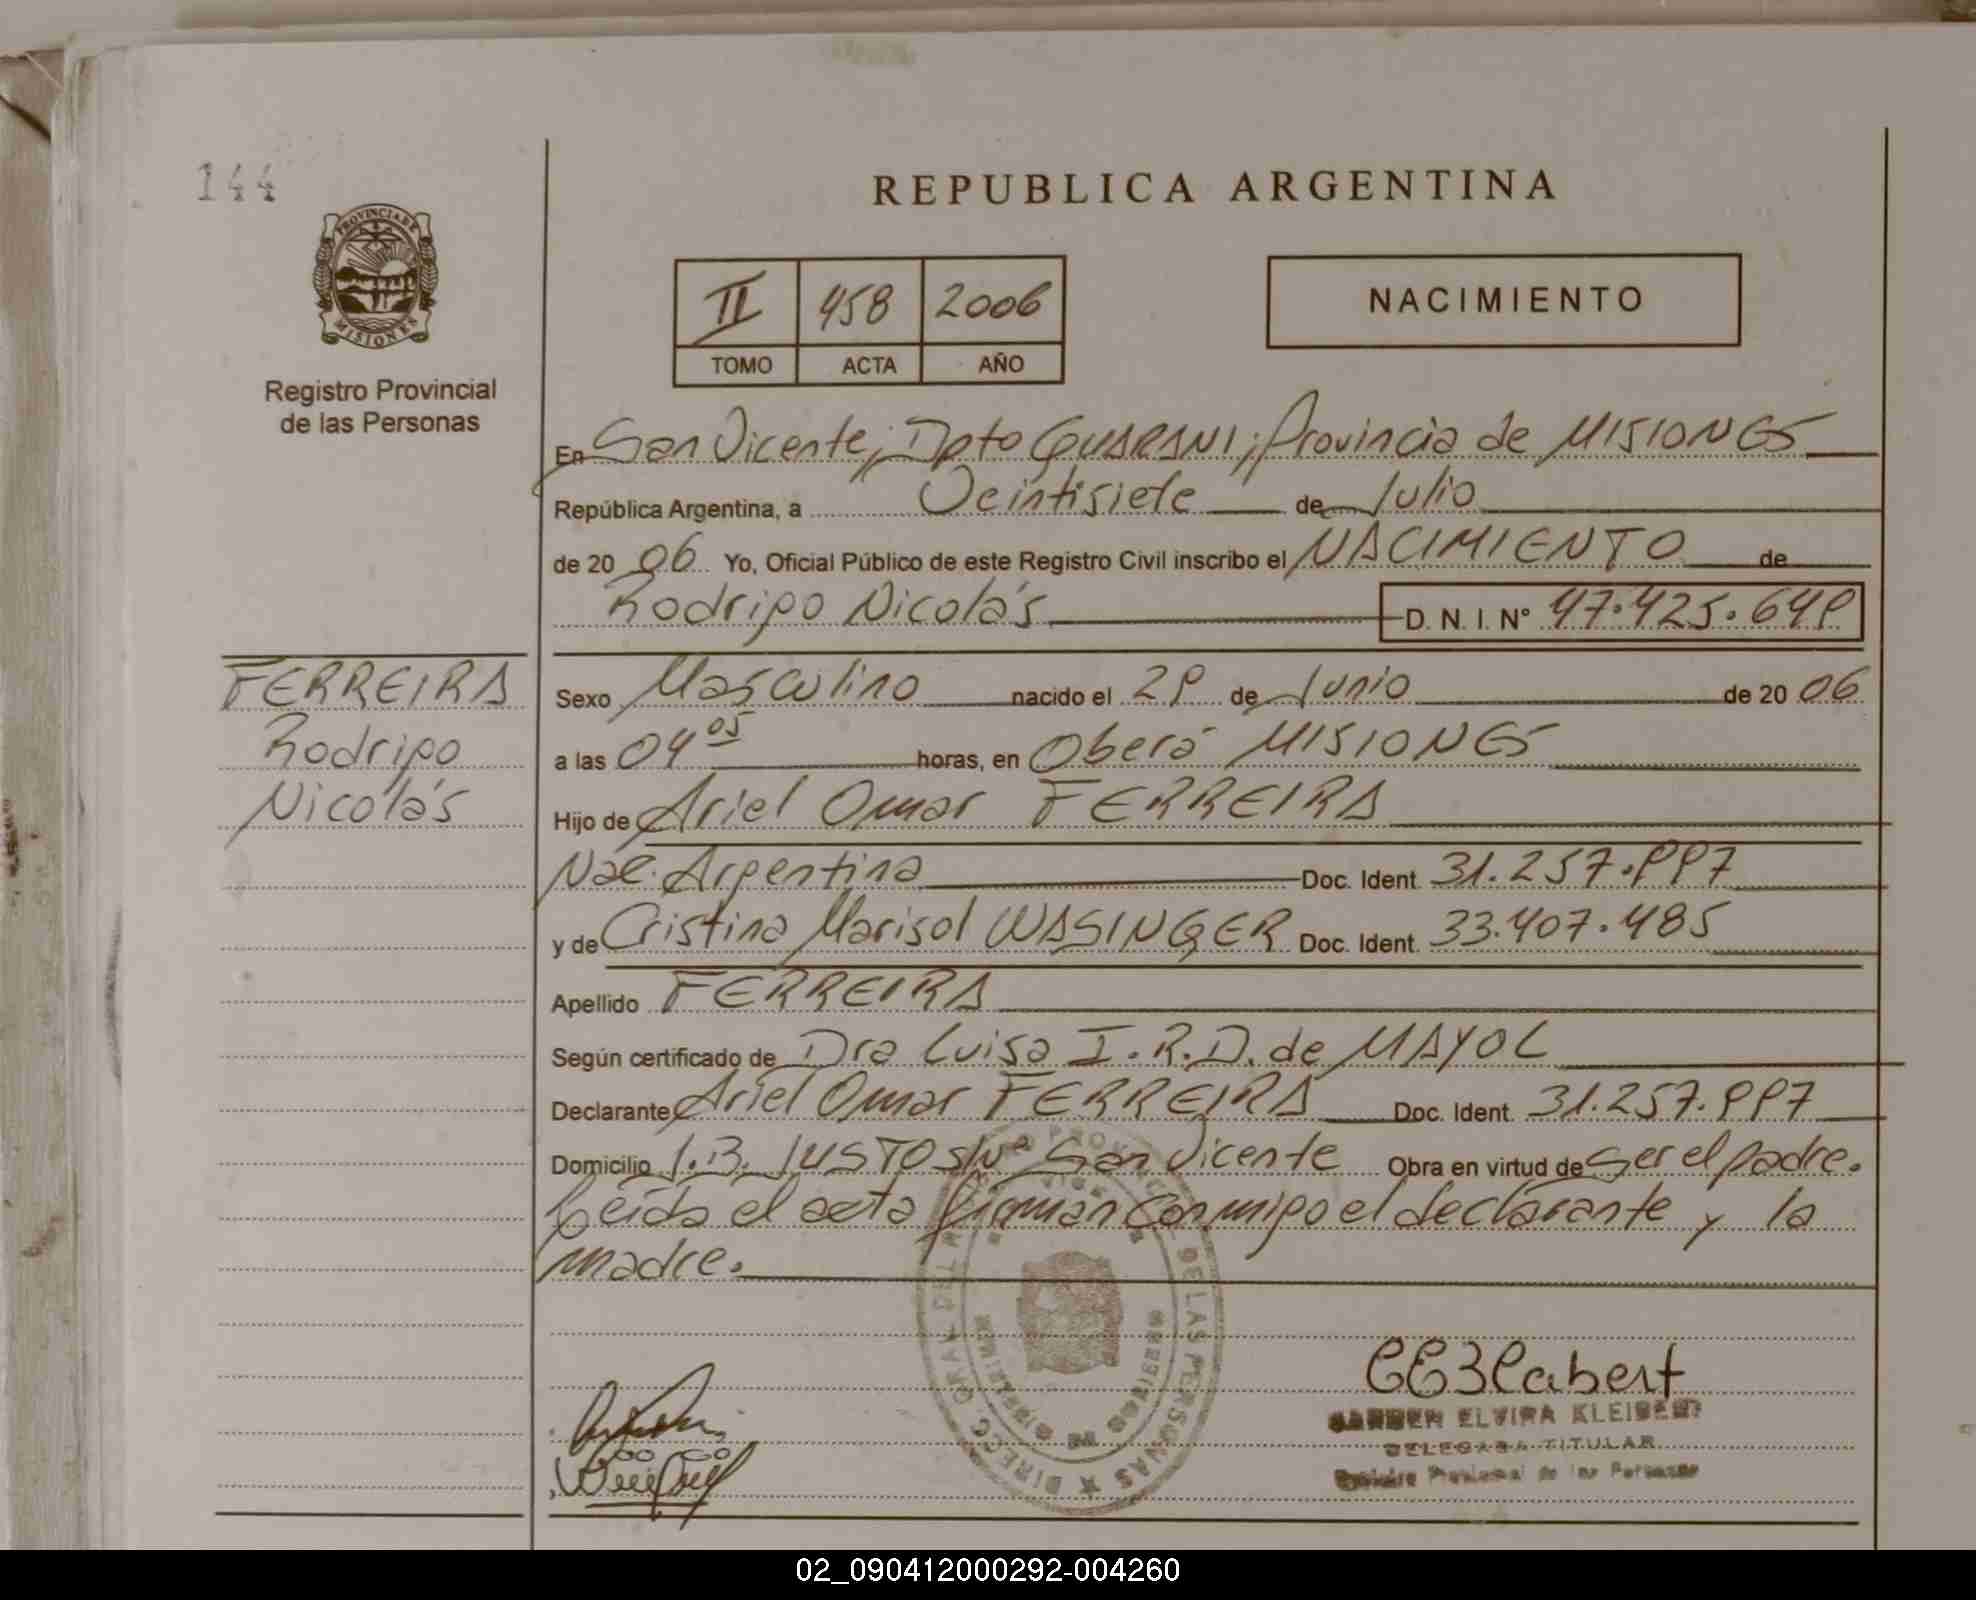 144
REPUBLICA ARGENTINA
PROVINCIA DE
MISIONES
Registro Provincial
de las Personas
II 458 2006
TOMO ACTA AÑO
NACIMIENTO
En San Vicente, Dpto GUARANI, Provincia de MISIONES
República Argentina, a Veintisiete de Julio
de 20 06 Yo, Oficial Público de este Registro Civil inscribo el NACIMIENTO de
Rodrigo Nicolás D. N. I. Nº 47.425.649
FERREIRA
Rodrigo
Nicolás
Sexo Masculino nacido el 29 de Junio de 20 06
a las 04 05 horas, en Oberá MISIONES
Hijo de Ariel Omar FERREIRA
Nac. Argentina Doc. Ident. 31.257.997
y de Cristina Marisol WASINGER Doc. Ident. 33.407.485
Apellido FERREIRA
Según certificado de Dra Luisa I.R.D. de MAYOL
Declarante Ariel Omar FERREIRA Doc. Ident. 31.257.997
Domicilio J.B. JUSTO S/Nº San Vicente Obra en virtud de Ser el padre.
Leída el acta firman conmigo el declarante y la
madre.
ELVIRA KLEIBERT
DELEGADA TITULAR
Registro Provincial de las Personas
02_090412000292-004260